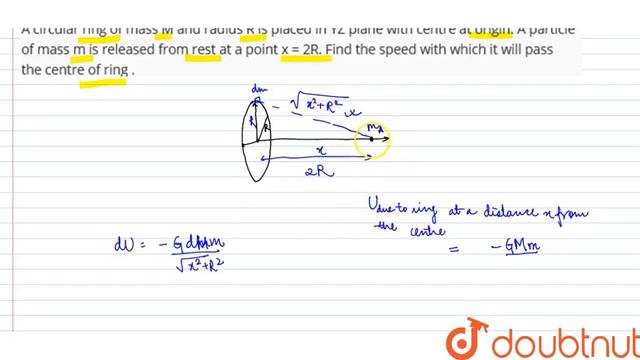 A circular ring of mass M and radius R is placed in YZ plane with centre at origin. A particle
of mass m is released from rest at a point x = 2R. Find the speed with which it will pass
the centre of ring .
dm
√x²+R²
R
R
m
x
2R
U due to ring at a distance x from
the centre
= -GMm
dU = -G dM m
√x²+R²
doubtnut